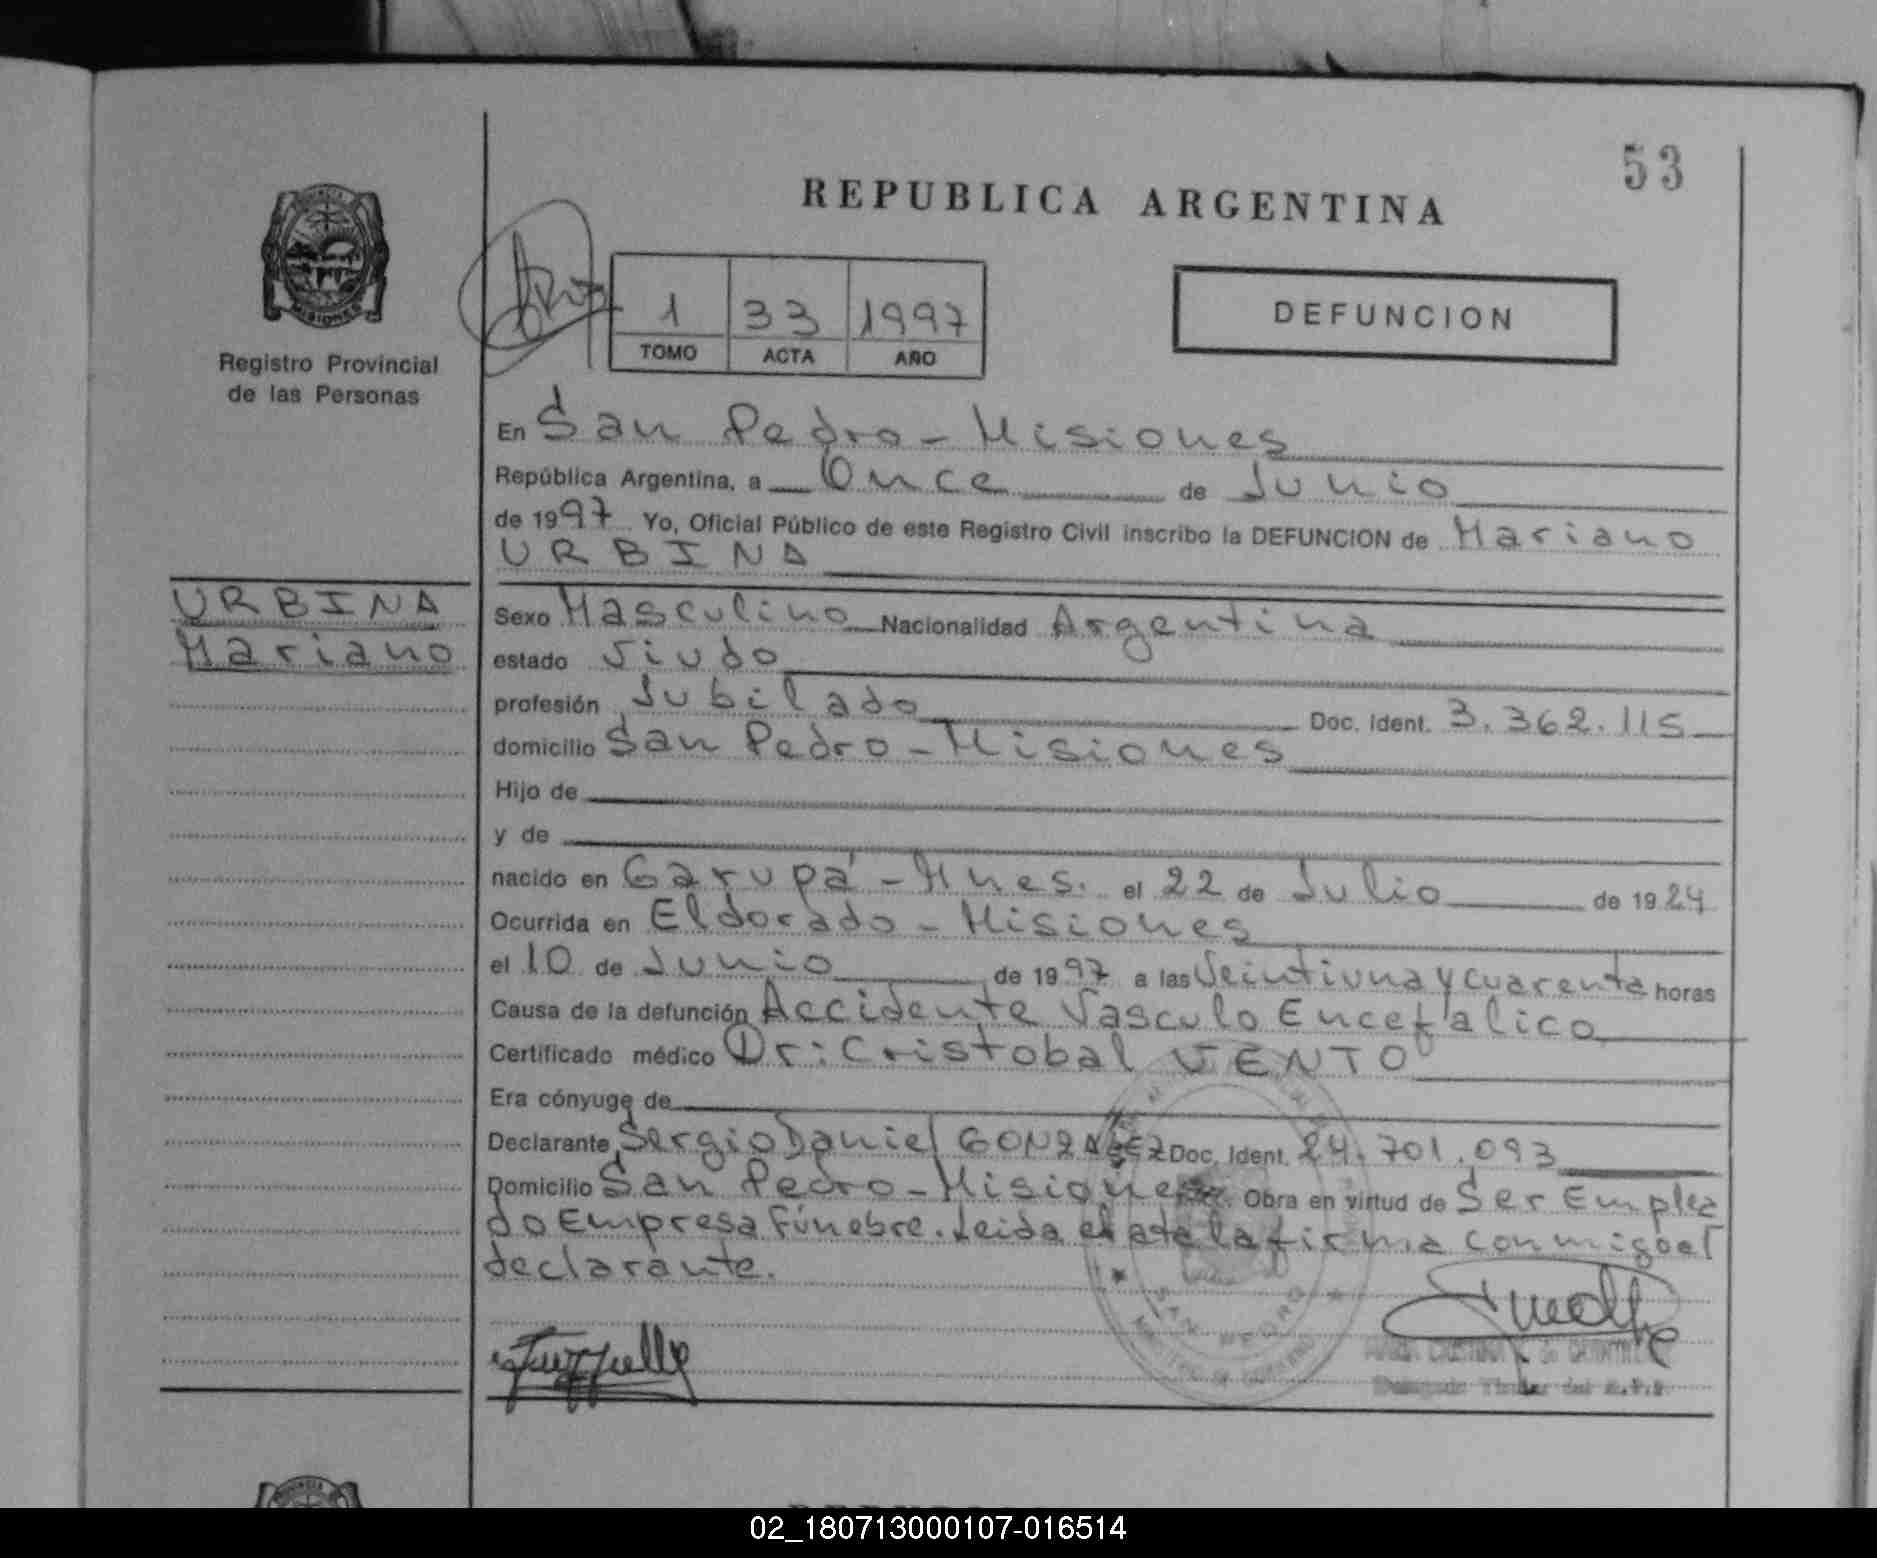 53
REPUBLICA ARGENTINA
MISIONES
Registro Provincial
de las Personas
1 33 1997
TOMO ACTA AÑO
DEFUNCION
En San Pedro - Misiones
República Argentina, a Once de Junio
de 1997 Yo, Oficial Público de este Registro Civil inscribo la DEFUNCION de Mariano
URBINA
URBINA
Mariano
Sexo Masculino Nacionalidad Argentina
estado Viudo
profesión Jubilado Doc. Ident. 3.362.115
domicilio San Pedro - Misiones
Hijo de
y de
nacido en Garupá - Mnes. el 22 de Julio de 1924
Ocurrida en Eldorado - Misiones
el 10 de Junio de 1997 a las Veintiuna y cuarenta horas
Causa de la defunción Accidente Vasculo Encefalico
Certificado médico Dr: Cristobal VENTO
Era cónyuge de
Declarante Sergio Daniel GONZALEZ Doc. Ident. 24.701.093
Domicilio San Pedro - Misiones Obra en virtud de Ser Emplea
do Empresa Fúnebre. Leida el acta la firma conmigo el
declarante.
SAN PEDRO
02_180713000107-016514